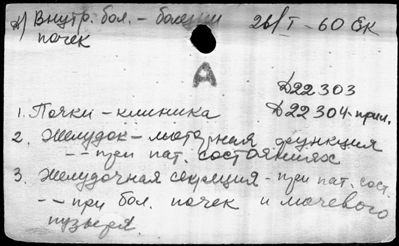 д) Внутр. бол. - болезни 26/I - 60 ЕК
почек
А
Д22303
1. Почки - клиника Д22304 прил.
2. Желудок - моторная функция
-- при пат. состояниях
3. Желудочная секреция - при пат. сост.
-- при бол. почек и мочевого
пузыря.